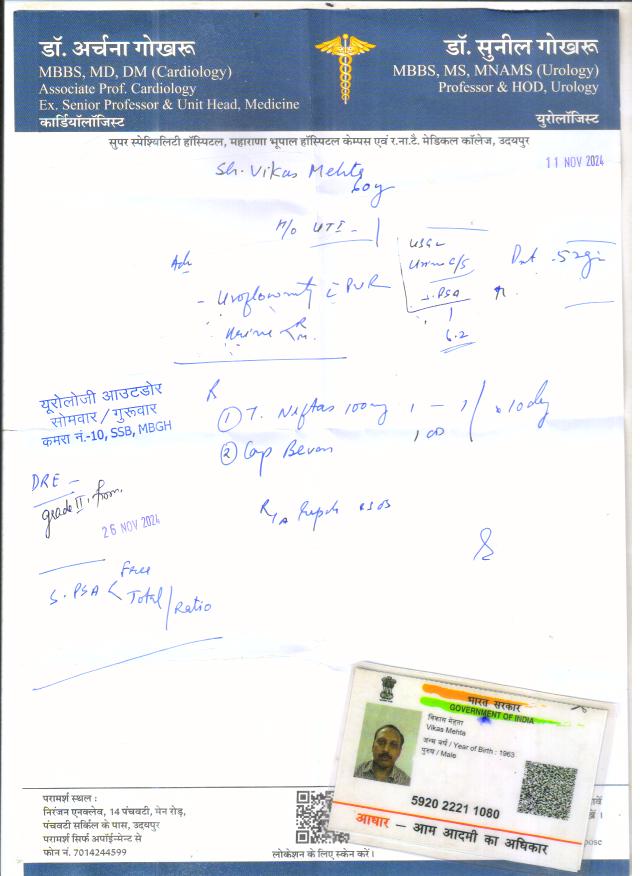 डॉ. अर्चना गोखरू
MBBS, MD, DM (Cardiology)
Associate Prof. Cardiology
Ex. Senior Professor & Unit Head, Medicine
कार्डियॉलॉजिस्ट
डॉ. सुनील गोखरू
MBBS, MS, MNAMS (Urology)
Professor & HOD, Urology
यूरोलॉजिस्ट
सुपर स्पेश्यिलिटी हॉस्पिटल, महाराणा भूपाल हॉस्पिटल केम्पस एवं र.ना.टै. मेडिकल कॉलेज, उदयपुर
11 NOV 2024
Sh. Vikas Mehta
60y
H/o UTI
USG
Urine C/S
S. PSA
6.2
Adv
- Uroflowmetry PVR
Urine R
M
यूरोलोजी आउटडोर
सोमवार / गुरूवार
कमरा नं.-10, SSB, MBGH
R
① T. Niftas 100mg 1 - 1 x 10 day
② Cap 1 OD
DRE -
grade II
26 NOV 2024
S. PSA < Free
Total / Ratio
भारत सरकार
GOVERNMENT OF INDIA
विकास मेहता
Vikas Mehta
जन्म वर्ष / Year of Birth : 1963
पुरुष / Male
5920 2221 1080
आधार — आम आदमी का अधिकार
परामर्श स्थल :
निरंजन एनक्लेव, 14 पंचवटी, मेन रोड़,
पंचवटी सर्किल के पास, उदयपुर
परामर्श सिर्फ अपॉईन्मेन्ट से
फोन नं. 7014244599
लोकेशन के लिए स्केन करें।